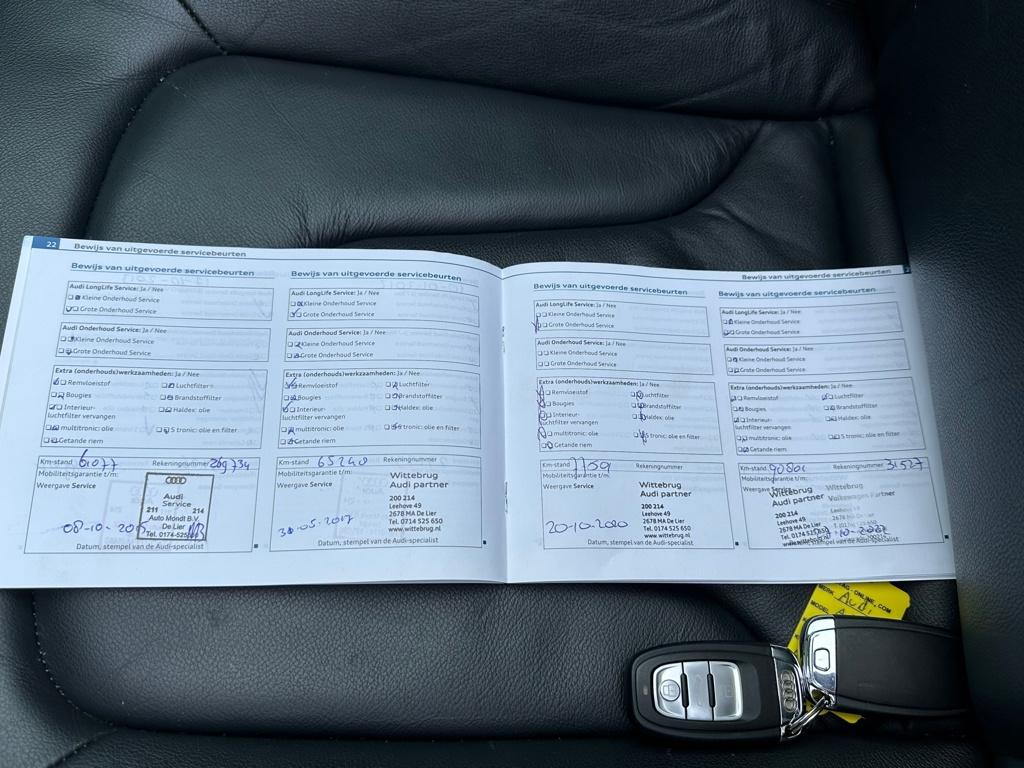 22 Bewijs van uitgevoerde servicebeurten
Bewijs van uitgevoerde servicebeurten
Audi LongLife Service: Ja / Nee
Kleine Onderhoud Service
Grote Onderhoud Service
Audi Onderhoud Service: Ja / Nee
Kleine Onderhoud Service
Grote Onderhoud Service
Extra (onderhouds)werkzaamheden: Ja / Nee
Remvloeistof Luchtfilter
Bougies Brandstoffilter
Interieur- Haldex: olie
luchtfilter vervangen
multitronic: olie S tronic: olie en filter
Getande riem
Km-stand 61077 Rekeningnummer 269734
Mobiliteitsgarantie t/m:
Weergave Service
Audi
Service
211 214
Auto Mondt B.V.
De Lier
Tel. 0174-525
Datum, stempel van de Audi-specialist
Bewijs van uitgevoerde servicebeurten
Audi LongLife Service: Ja / Nee
Kleine Onderhoud Service
Grote Onderhoud Service
Audi Onderhoud Service: Ja / Nee
Kleine Onderhoud Service
Grote Onderhoud Service
Extra (onderhouds)werkzaamheden: Ja / Nee
Remvloeistof Luchtfilter
Bougies Brandstoffilter
Interieur- Haldex: olie
luchtfilter vervangen
multitronic: olie S tronic: olie en filter
Getande riem
Km-stand 65240 Rekeningnummer
Mobiliteitsgarantie t/m:
Weergave Service
Wittebrug
Audi partner
200 214
Leehove 49
2678 MA De Lier
Tel. 0714 525 650
www.wittebrug.nl
-05-2017
Datum, stempel van de Audi-specialist
Bewijs van uitgevoerde servicebeurten
Bewijs van uitgevoerde servicebeurten
Audi LongLife Service: Ja / Nee
Kleine Onderhoud Service
Grote Onderhoud Service
Audi Onderhoud Service: Ja / Nee
Kleine Onderhoud Service
Grote Onderhoud Service
Extra (onderhouds)werkzaamheden: Ja / Nee
Remvloeistof Luchtfilter
Bougies Brandstoffilter
Interieur- Haldex: olie
luchtfilter vervangen
multitronic: olie S tronic: olie en filter
Getande riem
Km-stand Rekeningnummer
Mobiliteitsgarantie t/m:
Weergave Service
Wittebrug
Audi partner
200 214
Leehove 49
2678 MA De Lier
Tel. 0714 525 650
www.wittebrug.nl
20-10-2020
Datum, stempel van de Audi-specialist
Bewijs van uitgevoerde servicebeurten
Audi LongLife Service: Ja / Nee
Kleine Onderhoud Service
Grote Onderhoud Service
Audi Onderhoud Service: Ja / Nee
Kleine Onderhoud Service
Grote Onderhoud Service
Extra (onderhouds)werkzaamheden: Ja / Nee
Remvloeistof Luchtfilter
Bougies Brandstoffilter
Interieur- Haldex: olie
luchtfilter vervangen
multitronic: olie S tronic: olie en filter
Getande riem
Km-stand Rekeningnummer 31527
Mobiliteitsgarantie t/m:
Weergave Service
Wittebrug Wittebrug
Audi partner Volkswagen Partner
200 214
Leehove 49
2678 MA De Lier
stempel van de Audi-specialist
ONLINE.COM
MERK Audi
MODEL